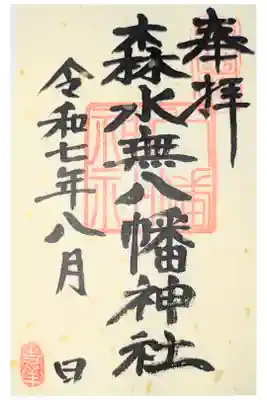 奉拝
森水無八幡神社
令和七年八月 日